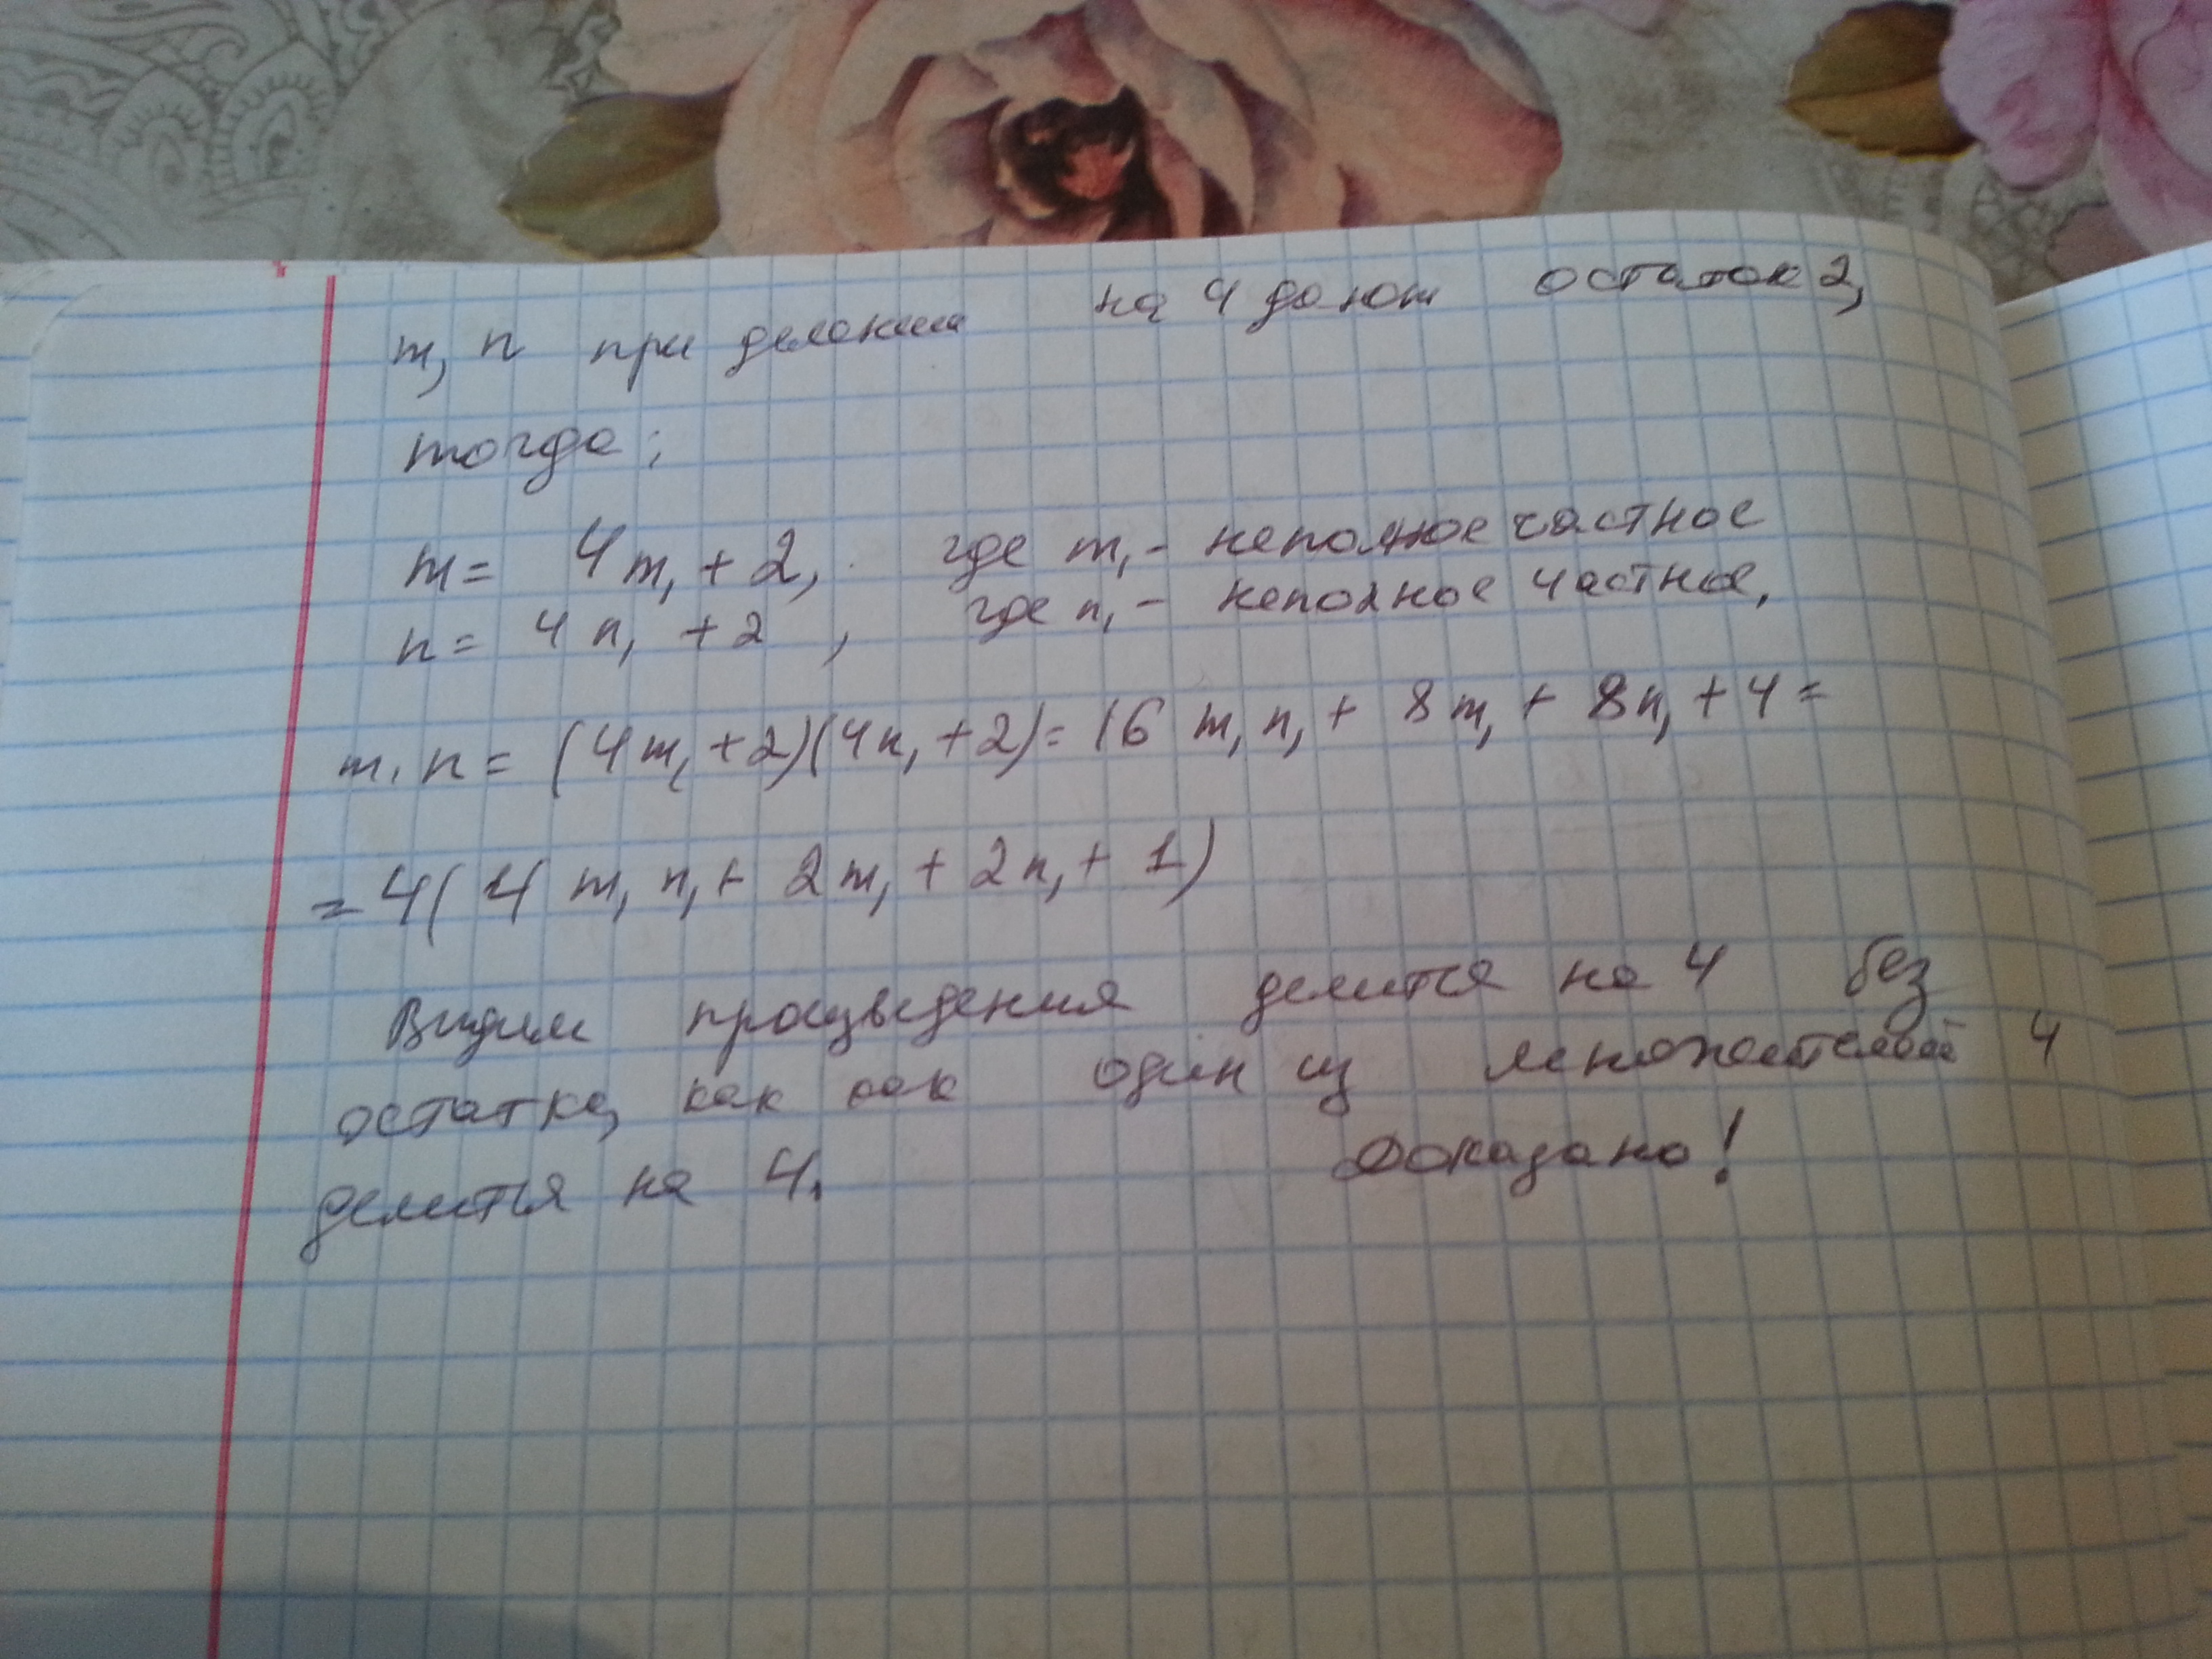 m, n при делении на 4 дают остаток 2,
тогда:
m = 4m₁ + 2, где m₁ - неполное частное
n = 4n₁ + 2, где n₁ - неполное частное.
m · n = (4m₁ + 2)(4n₁ + 2) = 16 m₁ n₁ + 8m₁ + 8n₁ + 4 =
= 4( 4 m₁ n₁ + 2m₁ + 2n₁ + 1)
Видим произведения делится на 4 без
остатка, как как один из множителей 4
делится на 4. Доказано!